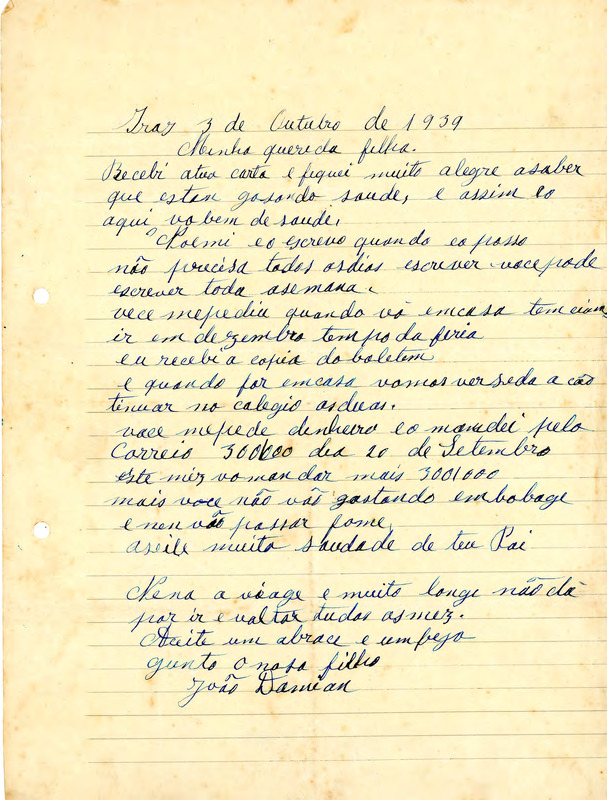 Iraz 3 de Outubro de 1939
Minha querida filha.
Recebi atua carta e fiquei muito alegre asaber
que estan gosando saude, e assim eo
aqui vobem de saude,
Noemi eo escrevo quando eo posso
não precisa todos osdias escrever vocepode
escrever toda asemana.
vece mepediu quando vò emcasa tem
ir em dezembro tempo da feria
eu recebi a copia do boletem
e quando for emcasa vomos ver seda a con
tinuar no colegio asduas.
voce mepede dinheiro eo mandei pelo
Correio 300000 dia 20 de Setembro
este mez vo mandar mais 300$000
mais voce não vão gastando embobage
e nen vão passar fome,
aseite muito saudade de teu Pai
Nena a viage e muito longe não dà
por ir e voltar tudos osmez.
Aceite um abrace e umbejo
gunto o noso filho
João Damian